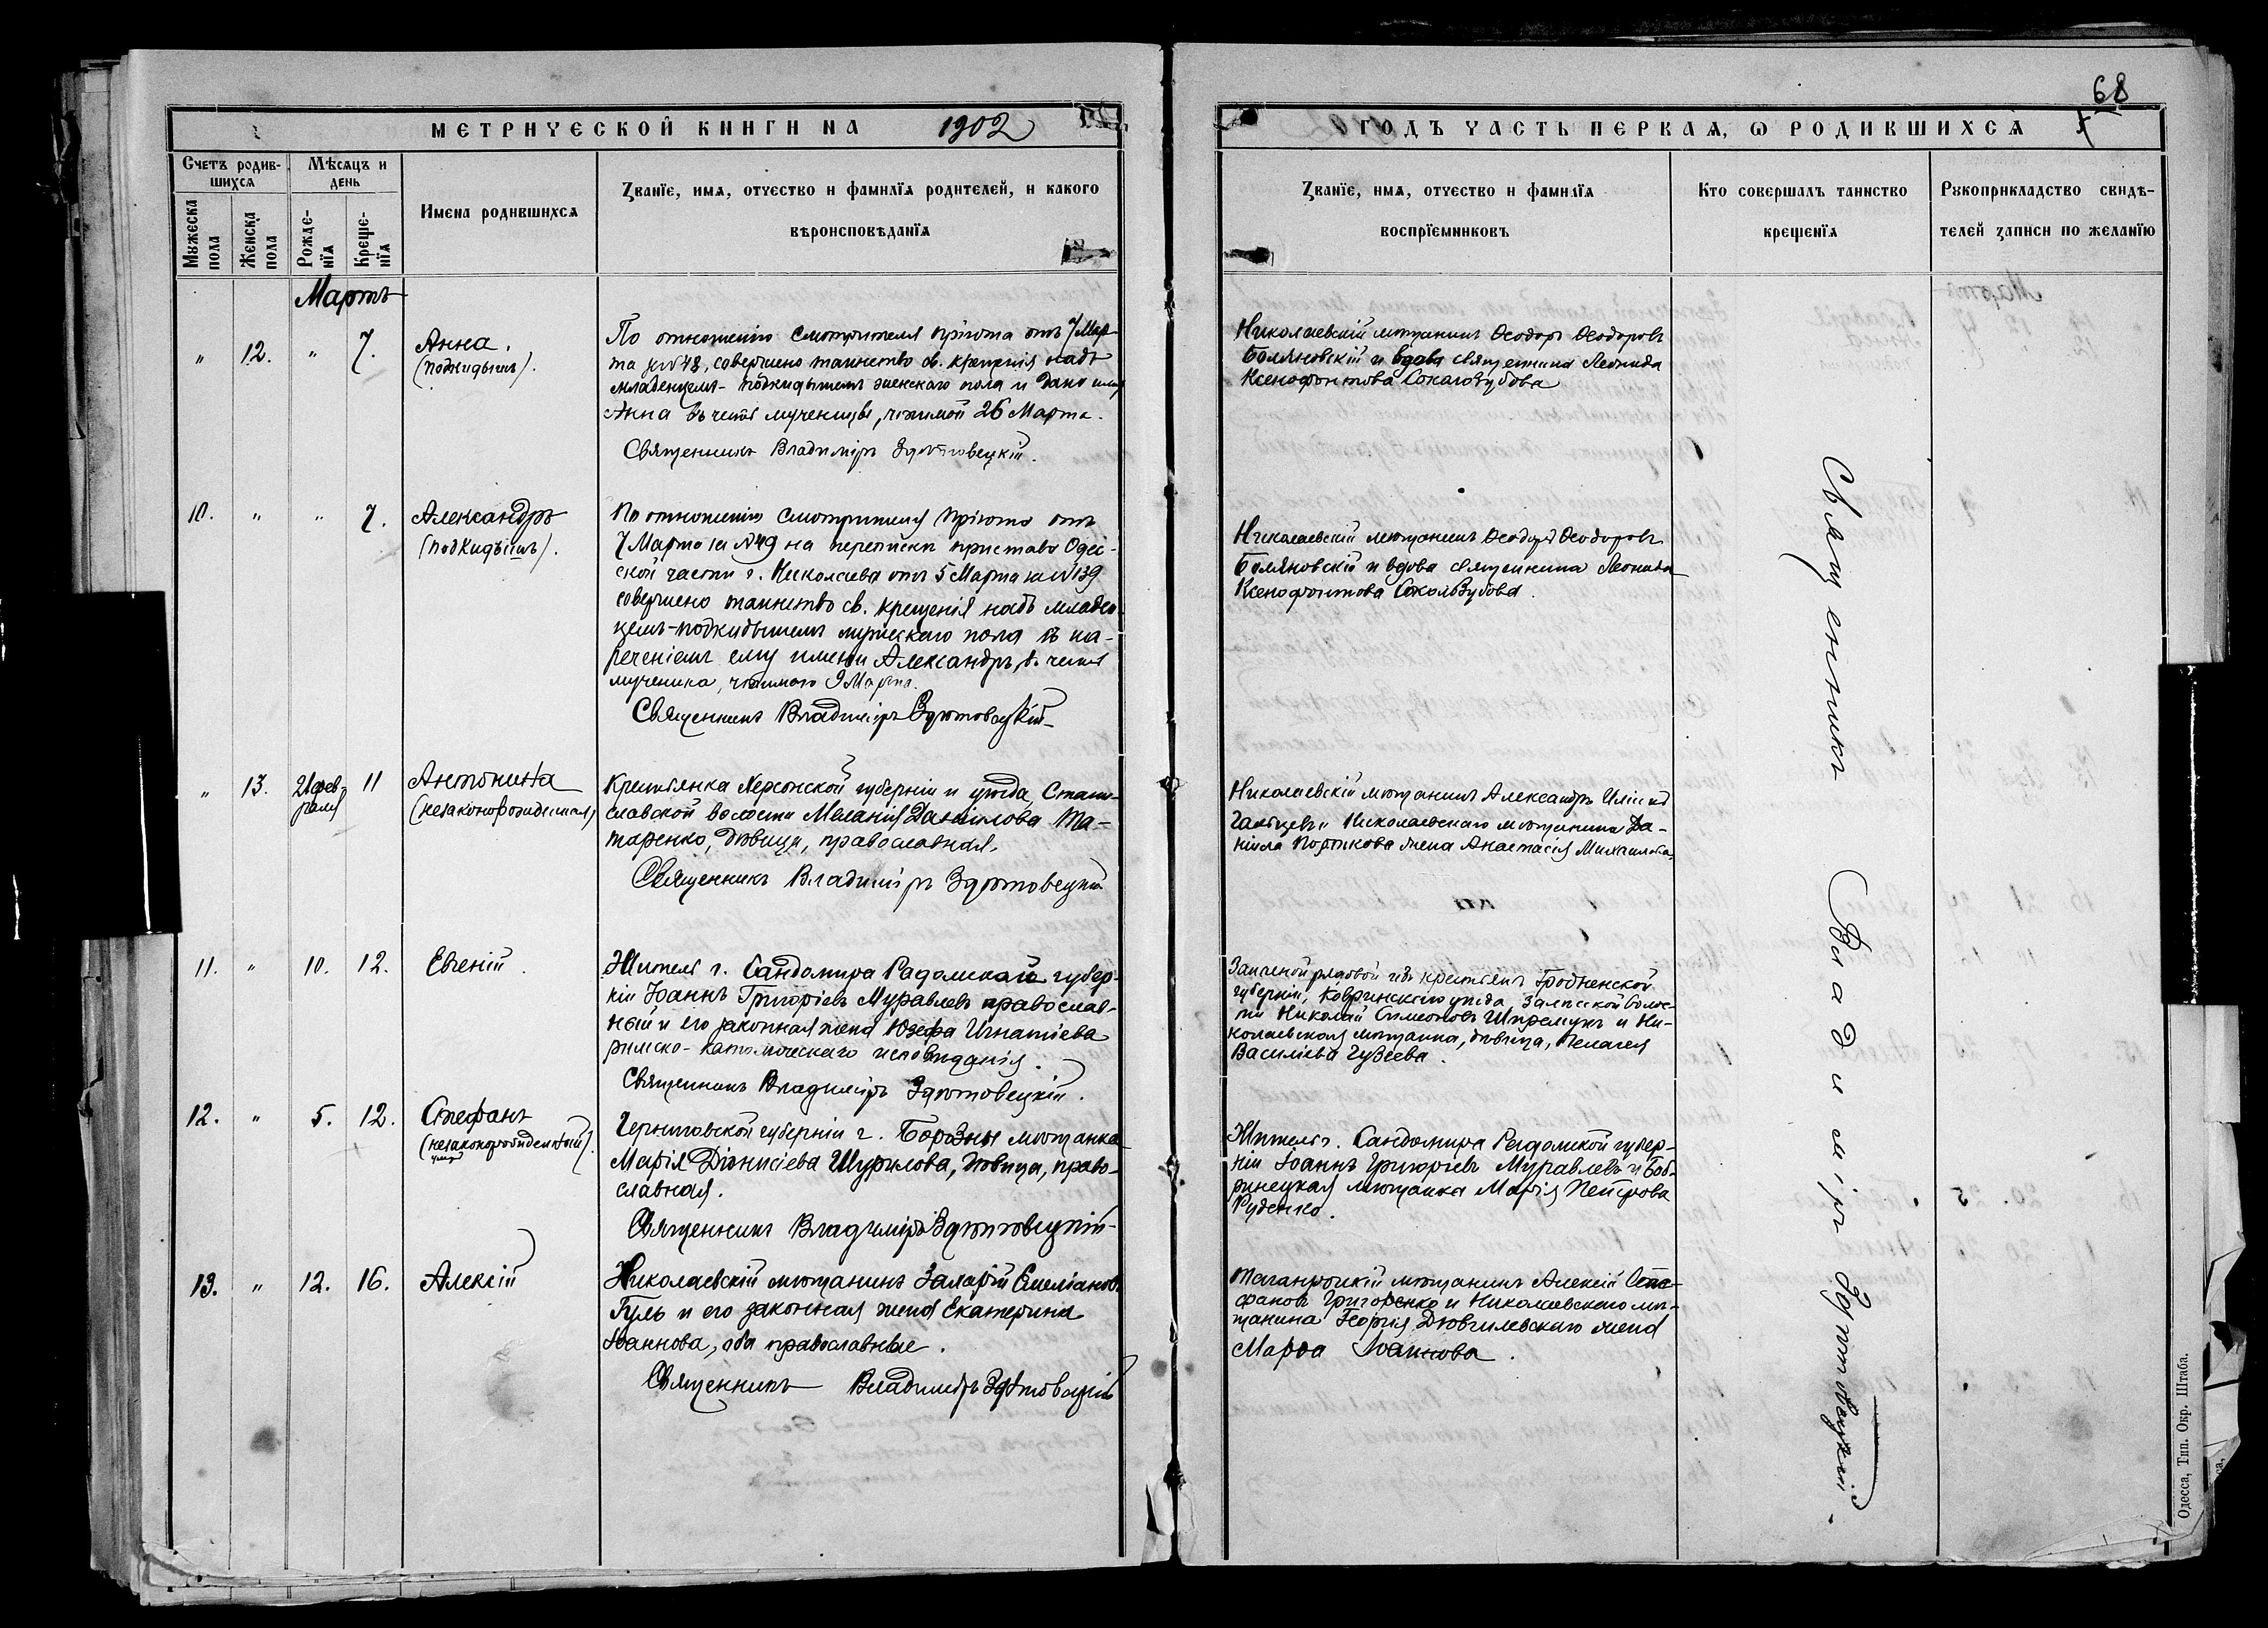 68
МЕТРИЧЕСКОЙ КНИГИ НА 1902
ГОДЪ ЧАСТЬ ПЕРВАЯ, Ѡ РОДИВШИХСЯ
Счетъ родив-
шихся
Мѣсяцъ и
день
Мужеска
пола
Женска
пола
Рожде-
нія
Креще-
нія
Имена родившихся
Званіе, имя, отчество и фамилія родителей, и какого
вѣроисповѣданія
Званіе, имя, отчество и фамилія
воспріемниковъ
Кто совершалъ таинство
крещенія
Рукоприкладство свидѣ-
телей записи по желанію
Мартъ
„ 12. „ 7.
Анна.
(подкидышъ).
По отношенію смотрителя пріюта отъ 7 Мар-
та за №48, совершено таинство св. крещенія надъ
младенцемъ-подкидышемъ женскаго пола и дано имя
Анна въ честь мученицы, чтимой 26 Марта.
Священникъ Владиміръ Здѣтовецкій.
Николаевскій мѣщанинъ Ѳеодоръ Ѳеодоровъ
Боляновскій и вдова священника Леонида
Ксенофонтова
10. „ „ 7.
Александръ
(подкидышъ).
По отношенію смотрителя пріюта отъ
7 Марта за №49 на переписки пристава Одес-
ской части г. Николаева отъ 5 Марта за №139
совершено таинство св. крещенія надъ младен-
цемъ-подкидышемъ мужескаго пола съ на-
реченіемъ ему имени Александръ, въ честь
мученика, чтимаго 9 Марта.
Священникъ Владиміръ Здѣтовецкій
Николаевскій мѣщанинъ Ѳеодоръ Ѳеодоровъ
Боляновскій и вдова священника Леонида
Ксенофонтова
„ 13. 21 фев-
раля 11
Антонина
(незаконорожденная)
Крестьянка Херсонской губерніи и уѣзда, Стани-
славской волости Меланія Даніилова Та-
таренко, дѣвица, православная.
Священникъ Владиміръ Здѣтовецкій
Николаевскій мѣщанинъ Александръ Иліинъ
и Николаевскаго мѣщанина Да-
ніила Портнова жена Анастасія Михаилова
11. „ 10. 12.
Евгеній.
Житель г. Сандомира Радомской губер-
ніи Іоаннъ Григоріевъ Муравлевъ православ-
ный и его законная жена Юзефа Игнатіева
римско-католическаго исповѣданія.
Священникъ Владиміръ Здѣтовецкій.
Запасной рядовой изъ крестьянъ Гродненской
губерніи, Кобринскаго уѣзда, Залѣсской волос-
ти Николай Симеоновъ и Ни-
колаевская мѣщанка, дѣвица, Пелагея
Василіева Гузеева.
12. „ 5. 12.
Стефанъ
(незаконорожденный).
умеръ
Черниговской губерніи г. Борзны мѣщанка
Марія Діонисіева Шурилова, дѣвица, право-
славная.
Священникъ Владиміръ Здѣтовецкій
Житель г. Сандомира Радомской губер-
ніи Іоаннъ Григоріевъ Муравлевъ и Боб-
ринецкая мѣщанка Марія Петрова
Руденко.
13. „ 12. 16.
Алексій
Николаевскій мѣщанинъ Захарій Емеліановъ
Гуль и его законная жена Екатерина
Іоаннова, оба православные.
Священникъ Владиміръ Здѣтовецкій
Таганрогскій мѣщанинъ Алексій Сте-
фановъ Григоренко и Николаевскаго мѣ-
щанина Георгія Довгилевскаго жена
Марѳа Іоаннова.
Священникъ Владиміръ Здѣтовецкій.
Одесса, Тип. Окр. Штаба.